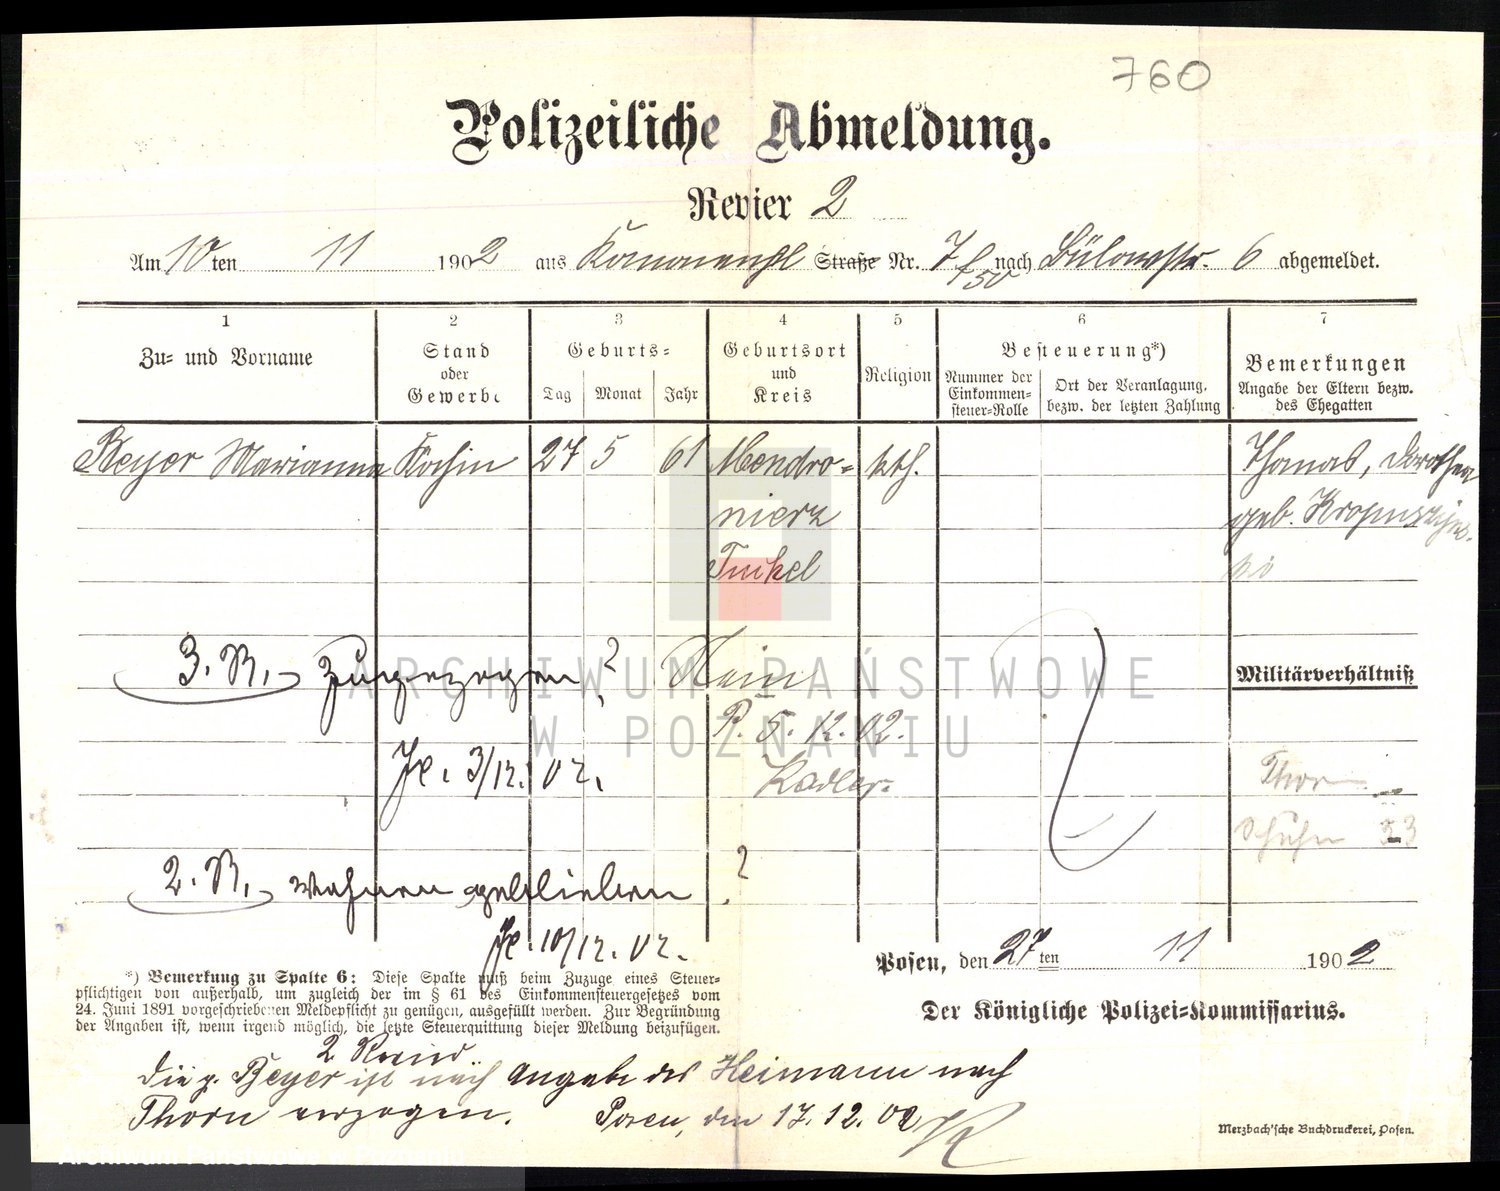 760
Polizeiliche Abmeldung.
Revier 2
Am 10ten 11 1902 aus Straße Nr. 7 nach Bülowstr. 6 abgemeldet.
1 2 3 4 5 6 7
Zu- und Vorname
Stand oder Gewerbe
Geburts-
Tag Monat Jahr
Geburtsort und Kreis
Religion
Besteuerung*)
Nummer der Einkommen-steuer-Rolle
Ort der Veranlagung, bezw. der letzten Zahlung
Bemerkungen
Angabe der Eltern bezw. des Ehegatten
Beyer Marianna Köchin 27 5 61 Mendro- kth. Thomas, Dorothea
nierz geb.
Tuchel ki
3. R. zugezogen? Nein
Militärverhältniß
P. 5. 12. 02.
Je. 3/12. 02.
Kadler
Thorn
Schuhm 33
2. R. wohnen geblieben?
Je. 10/12. 02.
Posen, den 27ten 11 1902
Der Königliche Polizei-Kommissarius.
*) Bemerkung zu Spalte 6: Diese Spalte muß beim Zuzuge eines Steuer-
pflichtigen von außerhalb, um zugleich der im § 61 des Einkommensteuergesetzes vom
24. Juni 1891 vorgeschriebenen Meldepflicht zu genügen, ausgefüllt werden. Zur Begründung
der Angaben ist, wenn irgend möglich, die letzte Steuerquittung dieser Meldung beizufügen.
2. Revier
Die p. Beyer ist nach Angabe des Heimann nach
Thorn verzogen. Posen, den 17.12.02
Merzbach'sche Buchdruckerei, Posen.
ARCHIWUM PAŃSTWOWE
W POZNANIU
Archiwum Państwowe w Poznaniu